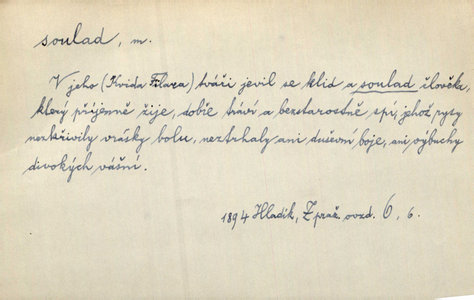 soulad, m.
V jeho (Kvida Flava) tváři jevil se klid a soulad člověka,
který příjemně žije, dobře tráví a bezstarostně spí, jehož rysy
nezkřivily vrásky bolu, neztrhaly ani duševní boje, ani výbuchy
divokých vášní.
1894 Hladík, Z praž. ovzd. 6, 6.